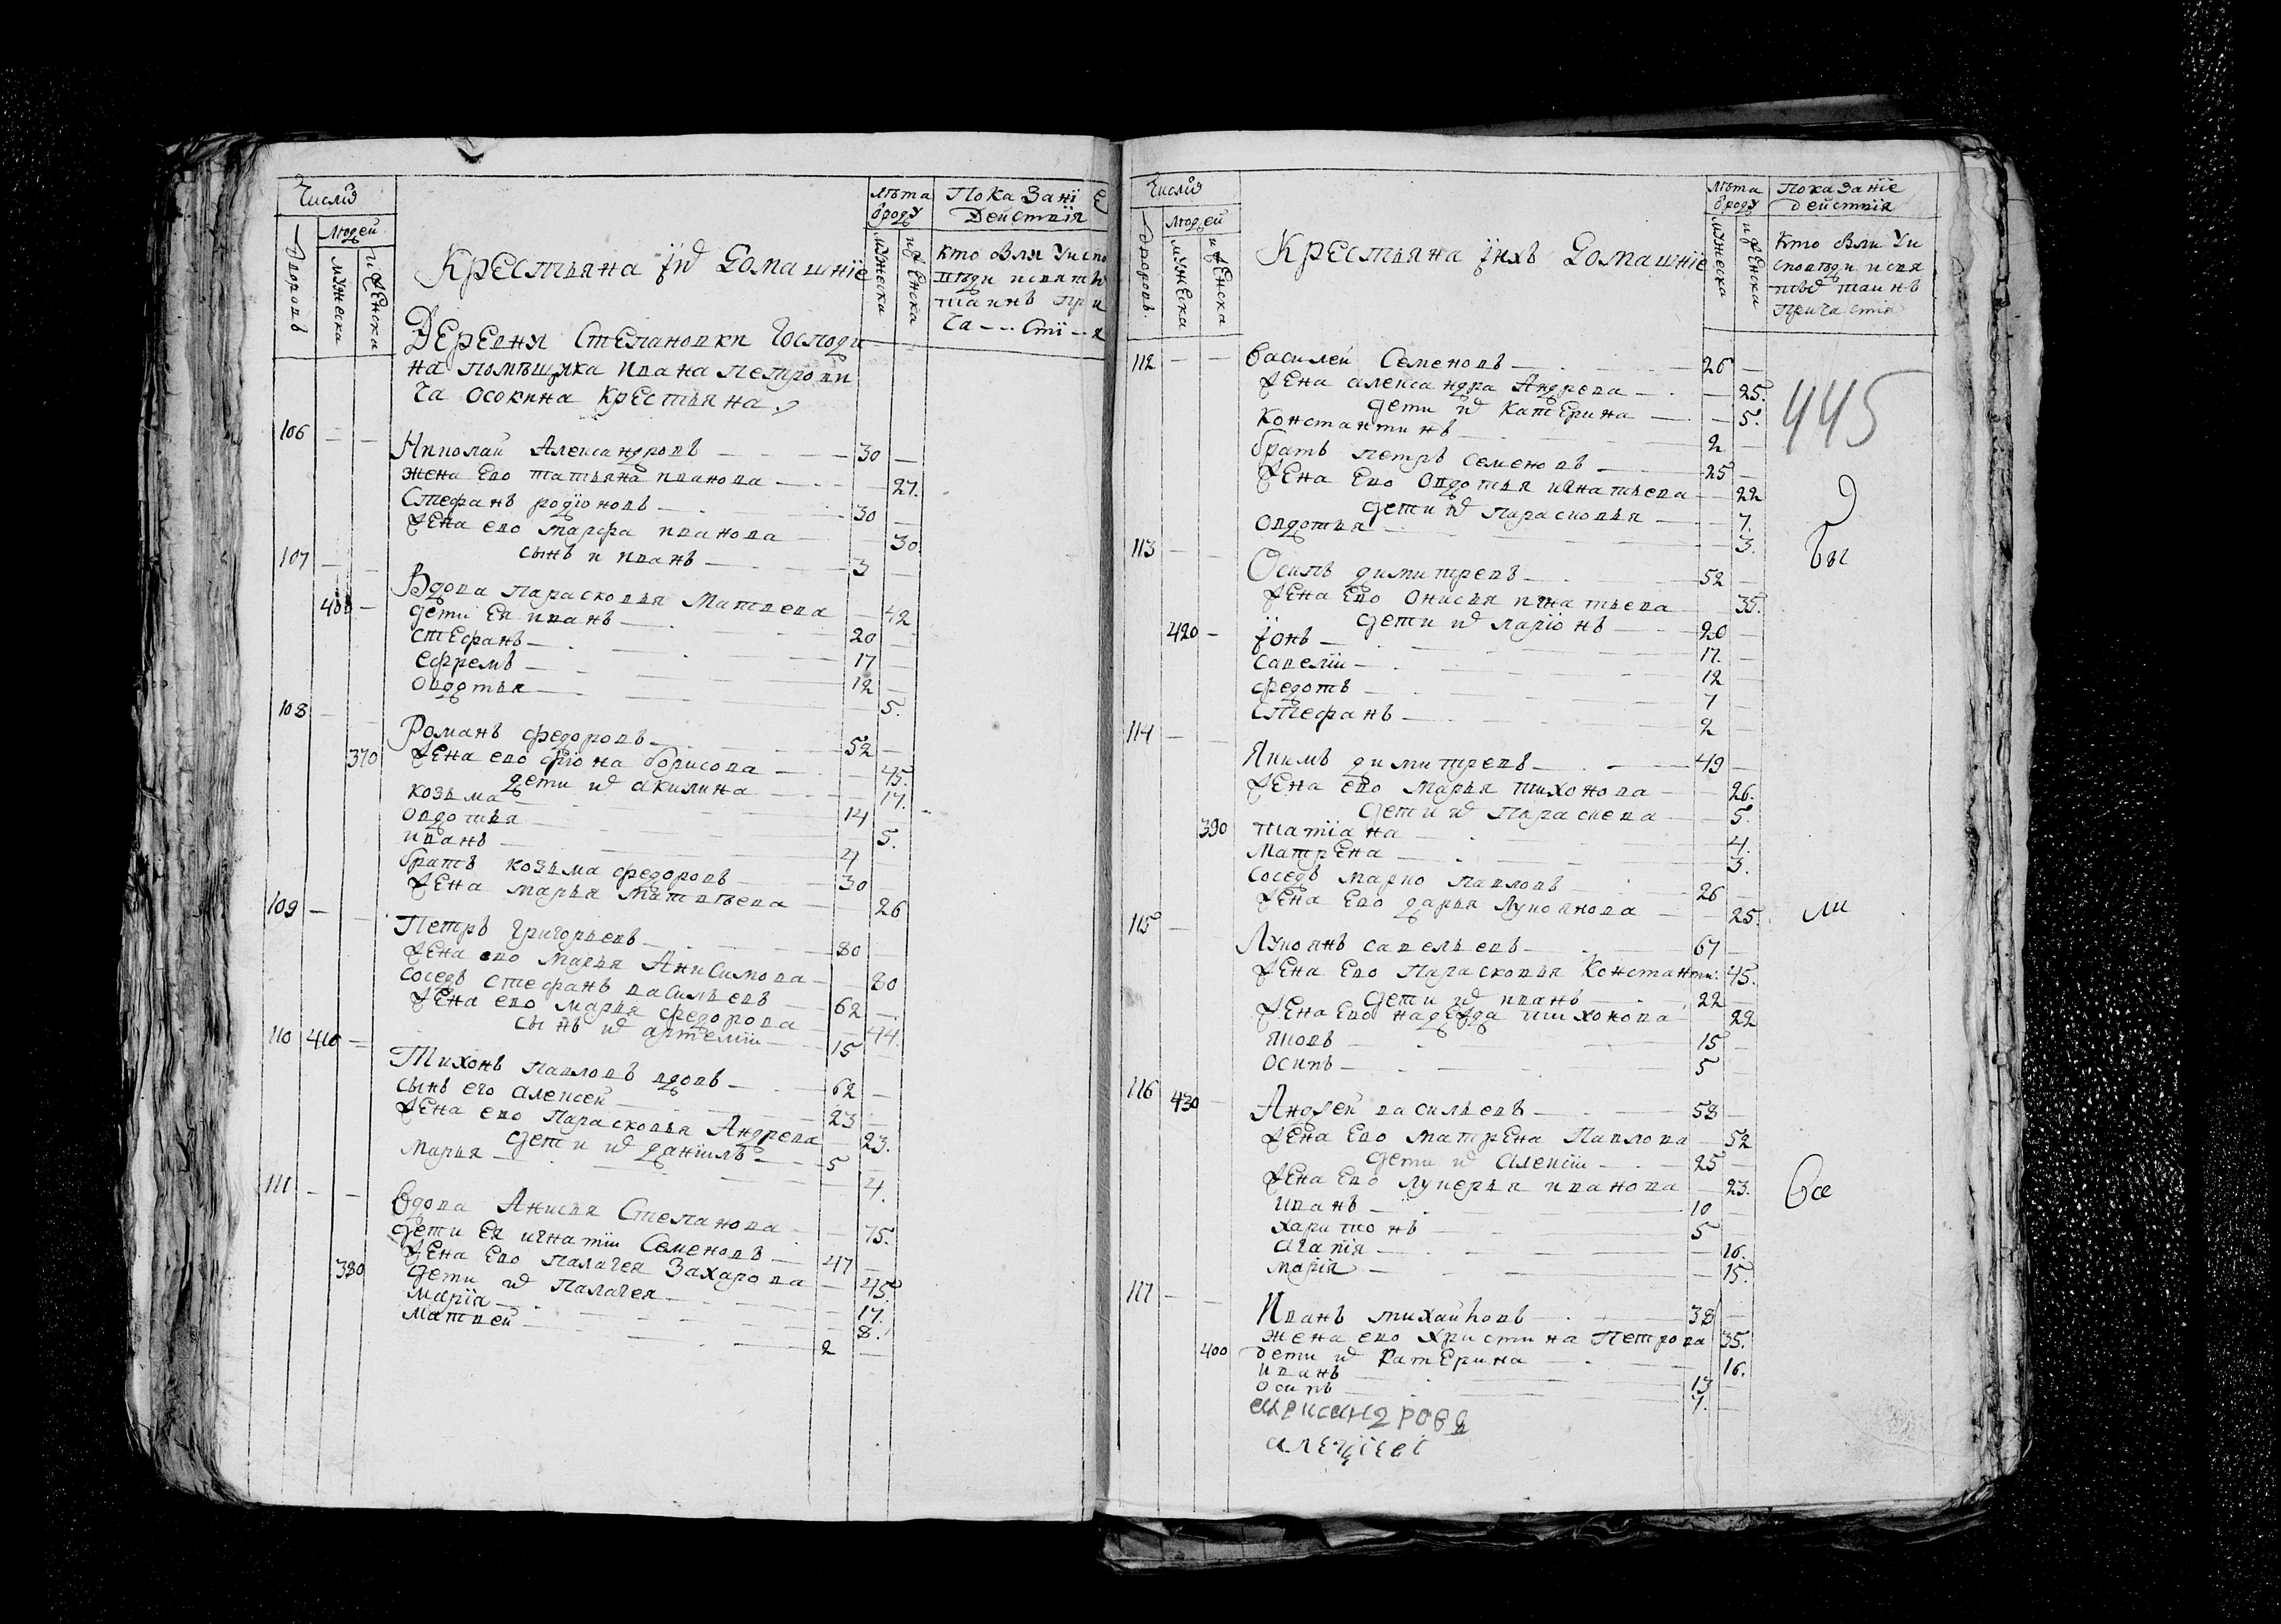 Число
Людей
дворовъ
мужеска
женска
Крестьяна ихъ домашніе
лѣта
ѿроду
мужеска
женска
Показаніе
Действія
кто былъ у испо
вѣди и святы
таинъ при
ча - - сті - - я
Деревня Степановки Господи
на помѣщика Ивана петрови
ча Осокина крестьяна
106 Николаи Александровъ 30
жена ево татьяна иванова 27.
Стефанъ родіоновъ 30
жена ево марфа иванова 30
сынъ и иванъ 3
107 Вдова парасковья Матвева 42
400 дети ея иванъ 20
стефанъ 17
ефремъ 12
овдотья 5.
108 Романъ федоровъ 52
370 жена ево фіона борисова 45.
дети их акилина 17.
козьма 14
овдотья 5.
иванъ 4
братъ козьма федоровъ 30
жена марья матвѣева 26
109 Петръ григорьевъ 80
жена ево марья Анисимова 80
соседъ стефанъ васильевъ 62
жена ево марья федорова 44.
сынъ их артемии 15
110 410 Тихонъ павловъ вдовъ 62
сынъ его алексей 23
жена ево парасковья Андрева 23.
дети их данїилъ 5
марья 4.
111 Вдова Анисья Степанова 75.
дети ея игнатіи Семеновъ 47
жена ево палагея Захарова 45.
380 дети их палагея 17.
марїа 8.
матвей 2
Число
Людей
дворовъ
мужеска
женска
Крестьяна ихъ домашніе
лѣта
ѿроду
мужеска
женска
Показаніе
действія
Кто былъ у и
споведи и свя
тых таинъ
причастія
112 Василеи Семеновъ 26
жена александра Андрева 25.
445
дети их катерина 5.
Константинъ 2
братъ петръ семеновъ 25
жена ево овдотья игнатьева 22
дети их парасковья 7.
Овдотья 3.
бы
113 Осипъ димитревъ 52
жена ево онисья игнатьева 35.
дети их ларіонъ 20
420 іонъ 17.
савелїи 12
федотъ 7
Стефанъ 2
114 Якимъ димитревъ 49
жена ево марья тихонова 26.
дети их Параскева 5.
390 татїана 4.
матрена 3.
соседъ марко павловъ 26
жена ево дарья лукоянова 25.
ли
115 Лукоянъ савельевъ 67
жена ево парасковья Константи: 45.
дети их иванъ 22
жена ево надежда тихонова 22
яковъ 15
осипъ 5
116 430 Андрей васильевъ 58
жена ево матрена павлова 52
дети их Алексіи 25
жена ево лукерья иванова 23.
все
иванъ 10
харитонъ 5
агапїя 16.
марїя 15.
117 Иванъ михаиловъ 38
жена ево христина петрова 35.
400 дети их катерина 16.
иванъ 13
осипъ 7.